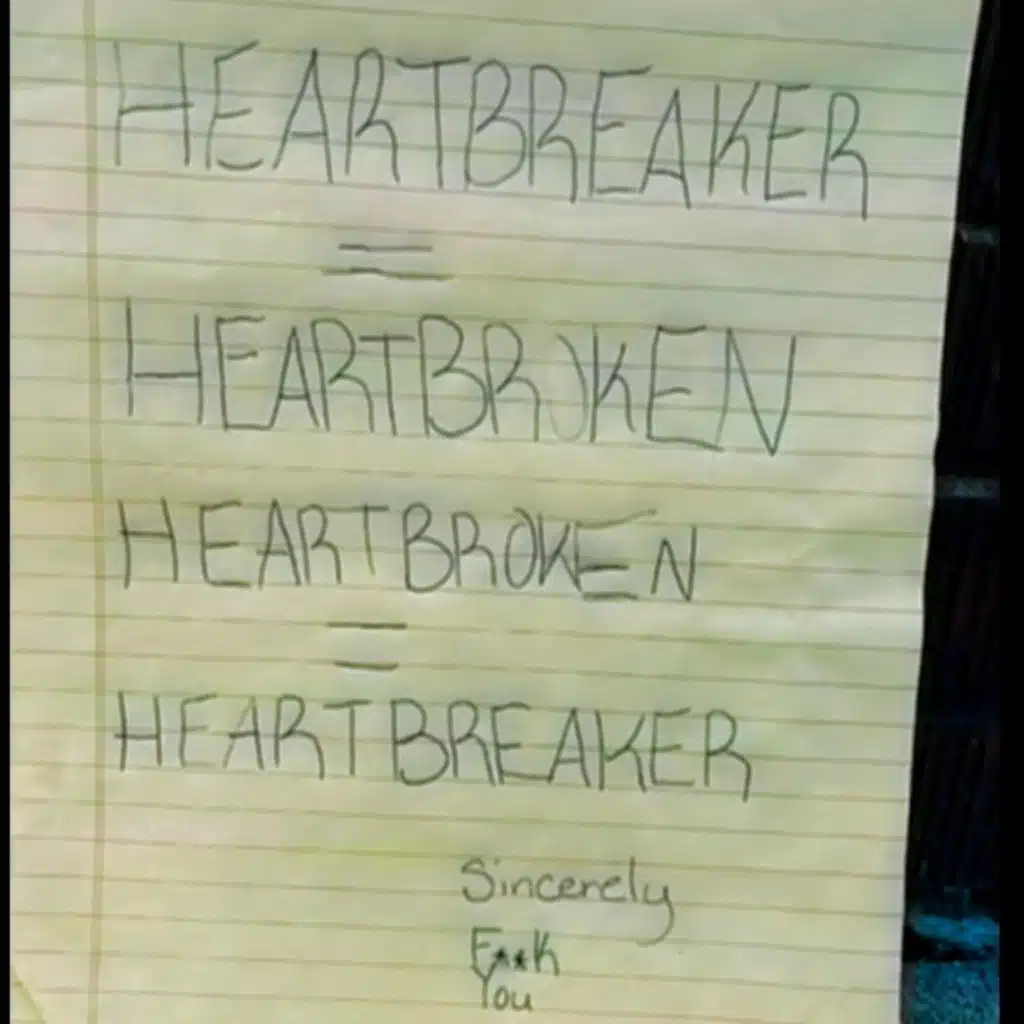 HEARTBREAKER
=
HEARTBROKEN
HEARTBROKEN
=
HEARTBREAKER
Sincerely
F**K
You